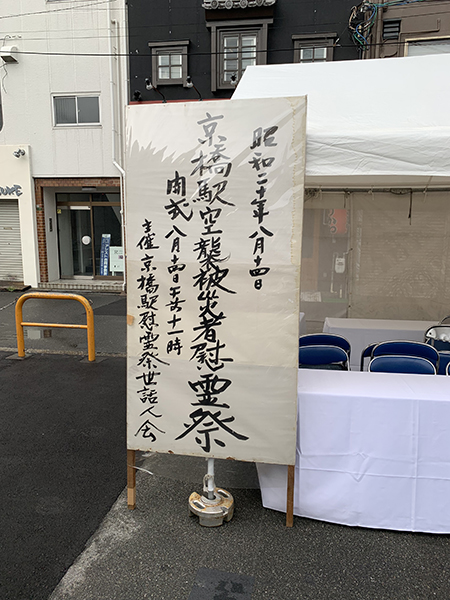 昭和二十年八月十四日
京橋駅空襲被災者慰霊祭
開式八月十四日午前十一時
主催京橋駅慰霊祭世話人会